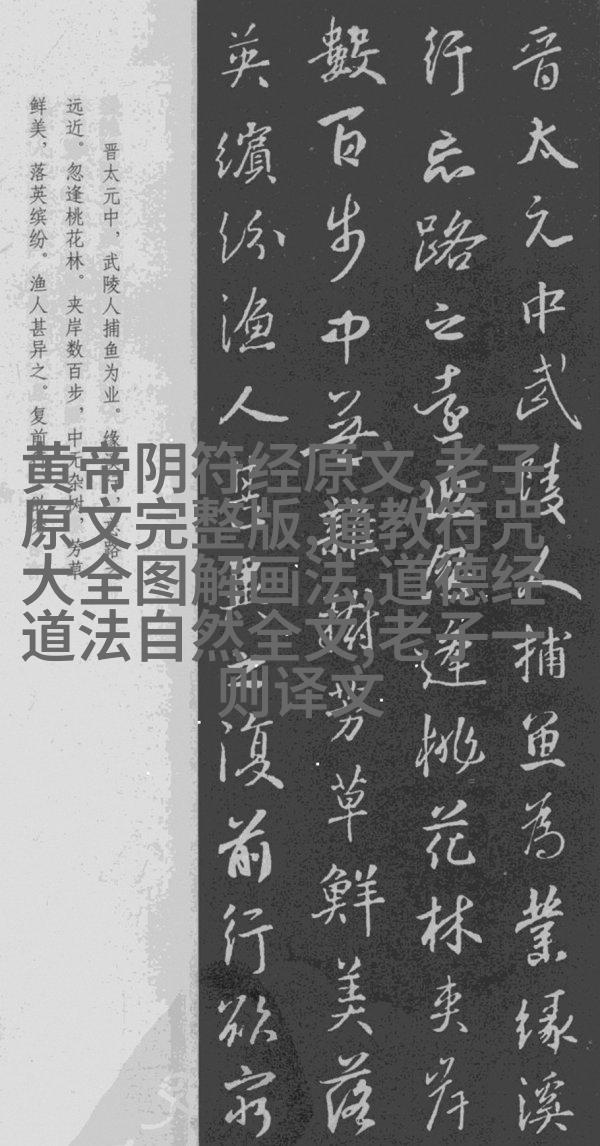 晋太元中武陵人捕鱼為業缘溪
行忘路之遠近忽逢桃花林夾岸
數百步中無雜樹芳草鮮美落
英繽紛漁人甚異之復前行欲窮
晋太元中，武陵人捕鱼为业。缘
远近。忽逢桃花林。夹岸数百步，中无杂树，芳草
鲜美，落英缤纷。渔人甚异之。复前
黄帝阴符经原文,老子
原文完整版,道教符咒
大全图解画法,道德经
道法自然全文,老子一
则译文